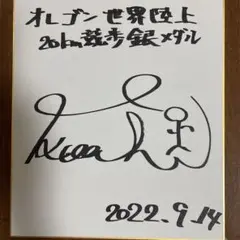 オレゴン世界陸上
20km競歩銀メダル
2022.9.14